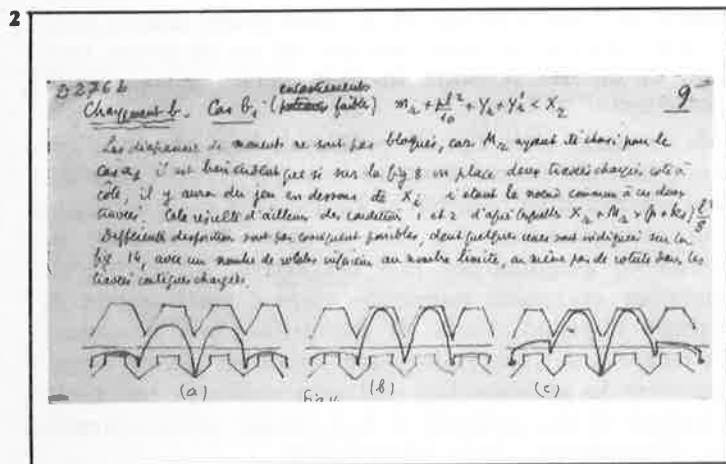 2
B2764
encastrements
9
Chargement b. Cas b1 (poteaux faibles) m2 + pl²/10 + Y2 + Y'2 < X2
Les diagrammes de moments ne sont pas bloqués, car M2 ayant été choisi pour le
cas a2 il est bien évident que si sur la fig 8 on place deux travées chargées côte à
côte, il y aura du jeu en dessous de Xi i étant le noeud commun à ces deux
travées. Cela résulte d'ailleurs des conditions 1 et 2 d'après lesquelles X2 + M2 > (p + ) l²/8
Différentes dispositions sont par conséquent possibles, dont quelques unes sont indiquées sur la
fig. 14, avec un nombre de rotules inférieur au nombre limite, ou même pas de rotule dans les
travées contigues chargées.
(a) (b) (c)
Fig 14